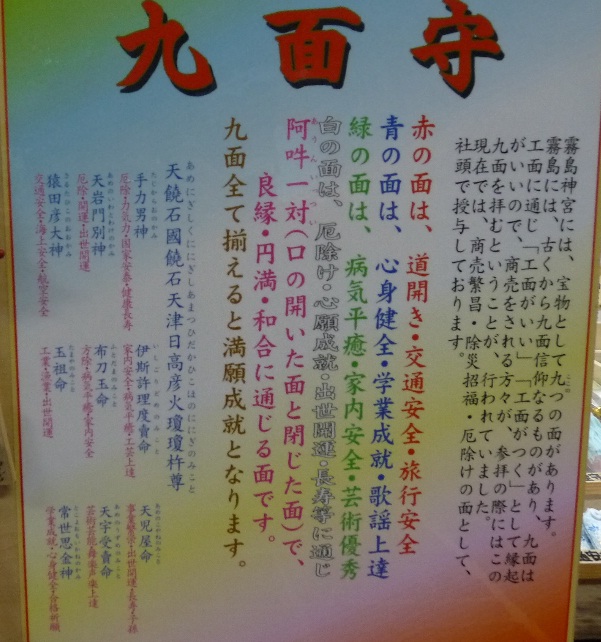 九面守
霧島神宮には、宝物として九つの面があります。
霧島には、古くから九面信仰なるものがあり、九面は
工面に通じ、「工面がいい」「工面がつく」として縁起
がいいので、商売をされる方々が、参拝の際にはこの
九面を拝むということが、行われていました。
現在では、商売繁昌・除災招福・厄除けの面として、
社頭で授与しております。
赤の面は、道開き・交通安全・旅行安全
青の面は、心身健全・学業成就・歌謡上達
緑の面は、病気平癒・家内安全・芸術優秀
白の面は、厄除け・心願成就・出世開運・長寿等に通じ
阿吽一対(口の開いた面と閉じた面)で、
良縁・円満・和合に通じる面です。
九面全て揃えると満願成就となります。
天饒石國饒石天津日高彦火瓊瓊杵尊
手力男神
厄除・力気力・国家安泰・健康長寿
天岩門別神
厄除・開運・出世開運
猿田彦大神
交通安全・海上安全・航空安全
伊斯許理度賣命
家内安全・病気平癒・工芸上達
布刀玉命
方除・病気平癒・家内安全
玉祖命
工業・漁業・出世開運
天児屋命
天宇受賣命
芸術芸能・舞楽声楽上達
常世思金神
学業成就・心身健全・合格祈願